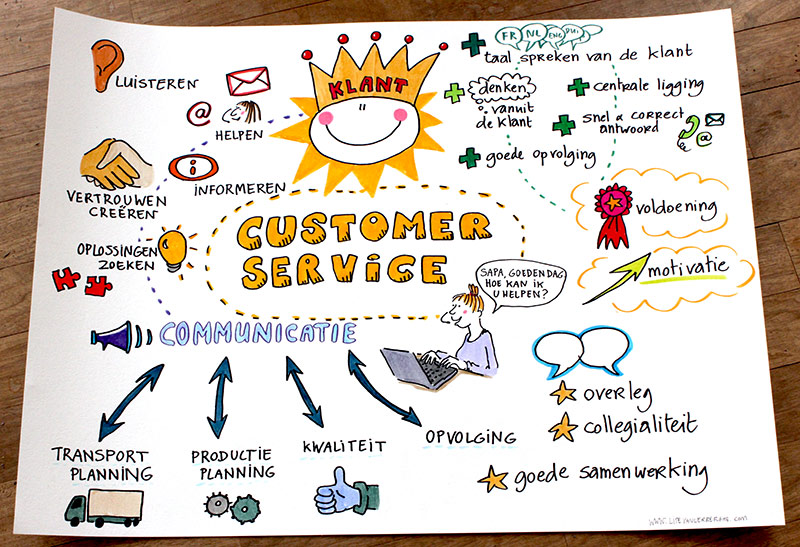 LUISTEREN
@
HELPEN
VERTROUWEN
CREËREN
i
INFORMEREN
OPLOSSINGEN
ZOEKEN
KLANT
FR NL ENG DUI
taal spreken van de klant
denken
vanuit
de klant
centrale ligging
snel & correct
antwoord
@
goede opvolging
voldoening
motivatie
CUSTOMER
SERVICE
SAPA, GOEDENDAG
HOE KAN IK
U HELPEN?
COMMUNICATIE
TRANSPORT
PLANNING
PRODUCTIE
PLANNING
KWALITEIT
OPVOLGING
overleg
collegialiteit
goede samenwerking